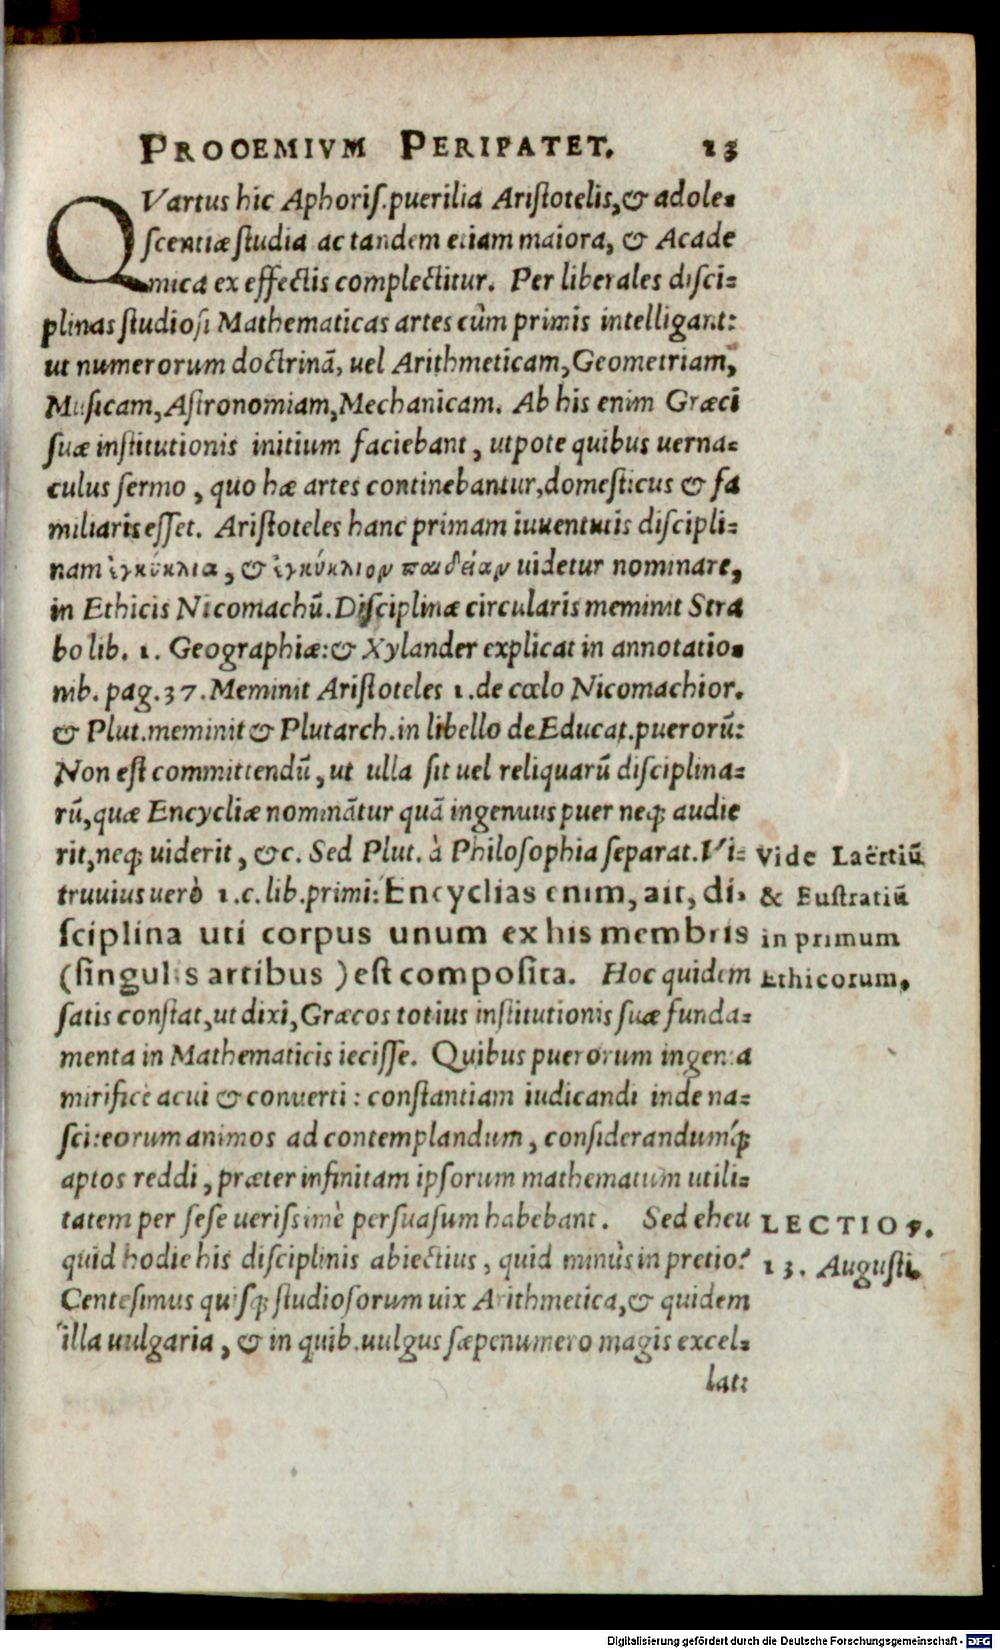 PROOEMIVM PERIPATET. 13
QVartus hic Aphoris. puerilia Aristotelis, & adole-
scentiæ studia ac tandem etiam maiora, & Acade
mica ex effectis complectitur. Per liberales disci-
plinas studiosi Mathematicas artes cùm primis intelligant:
ut numerorum doctrinã, uel Arithmeticam, Geometriam,
Musicam, Astronomiam, Mechanicam. Ab his enim Græci
suæ institutionis initium faciebant, utpote quibus uerna-
culus sermo, quo hæ artes continebantur, domesticus & fa
miliaris esset. Aristoteles hanc primam iuuentutis discipli-
nam ἐγκύκλια, & ἐγκύκλιον παιδείαν uidetur nominare,
in Ethicis Nicomachũ. Disciplinæ circularis meminit Stra
bo lib. 1. Geographiæ: & Xylander explicat in annotatio-
nib. pag. 37. Meminit Aristoteles 1. de cœlo Nicomachior.
& Plut. meminit & Plutarch. in libello de Educat. puerorũ:
Non est committendũ, ut ulla sit uel reliquarũ disciplina-
rũ, quæ Encycliæ nominãtur quã ingenuus puer neq; audie
rit, neq; uiderit, &c. Sed Plut. à Philosophia separat. Vi-
truuius uerò 1. c. lib. primi: Encyclias enim, ait, di-
sciplina uti corpus unum ex his membris
(singulis artibus) est composita. Hoc quidem
satis constat, ut dixi, Græcos totius institutionis suæ funda-
menta in Mathematicis iecisse. Quibus puerorum ingenia
mirificè acui & conuerti: constantiam iudicandi inde na-
sci: eorum animos ad contemplandum, considerandumq́;
aptos reddi, præter infinitam ipsorum mathematum utili-
tatem per sese uerissimè persuasum habebant. Sed eheu
quid hodie his disciplinis abiectius, quid minùs in pretio?
Centesimus quisq; studiosorum uix Arithmetica, & quidem
illa uulgaria, & in quib. uulgus sæpenumero magis excel-
lat:
Vide Laërtiũ
& Eustratiũ
in primum
Ethicorum.
LECTIO 9.
13. Augusti.
Digitalisierung gefördert durch die Deutsche Forschungsgemeinschaft - DFG